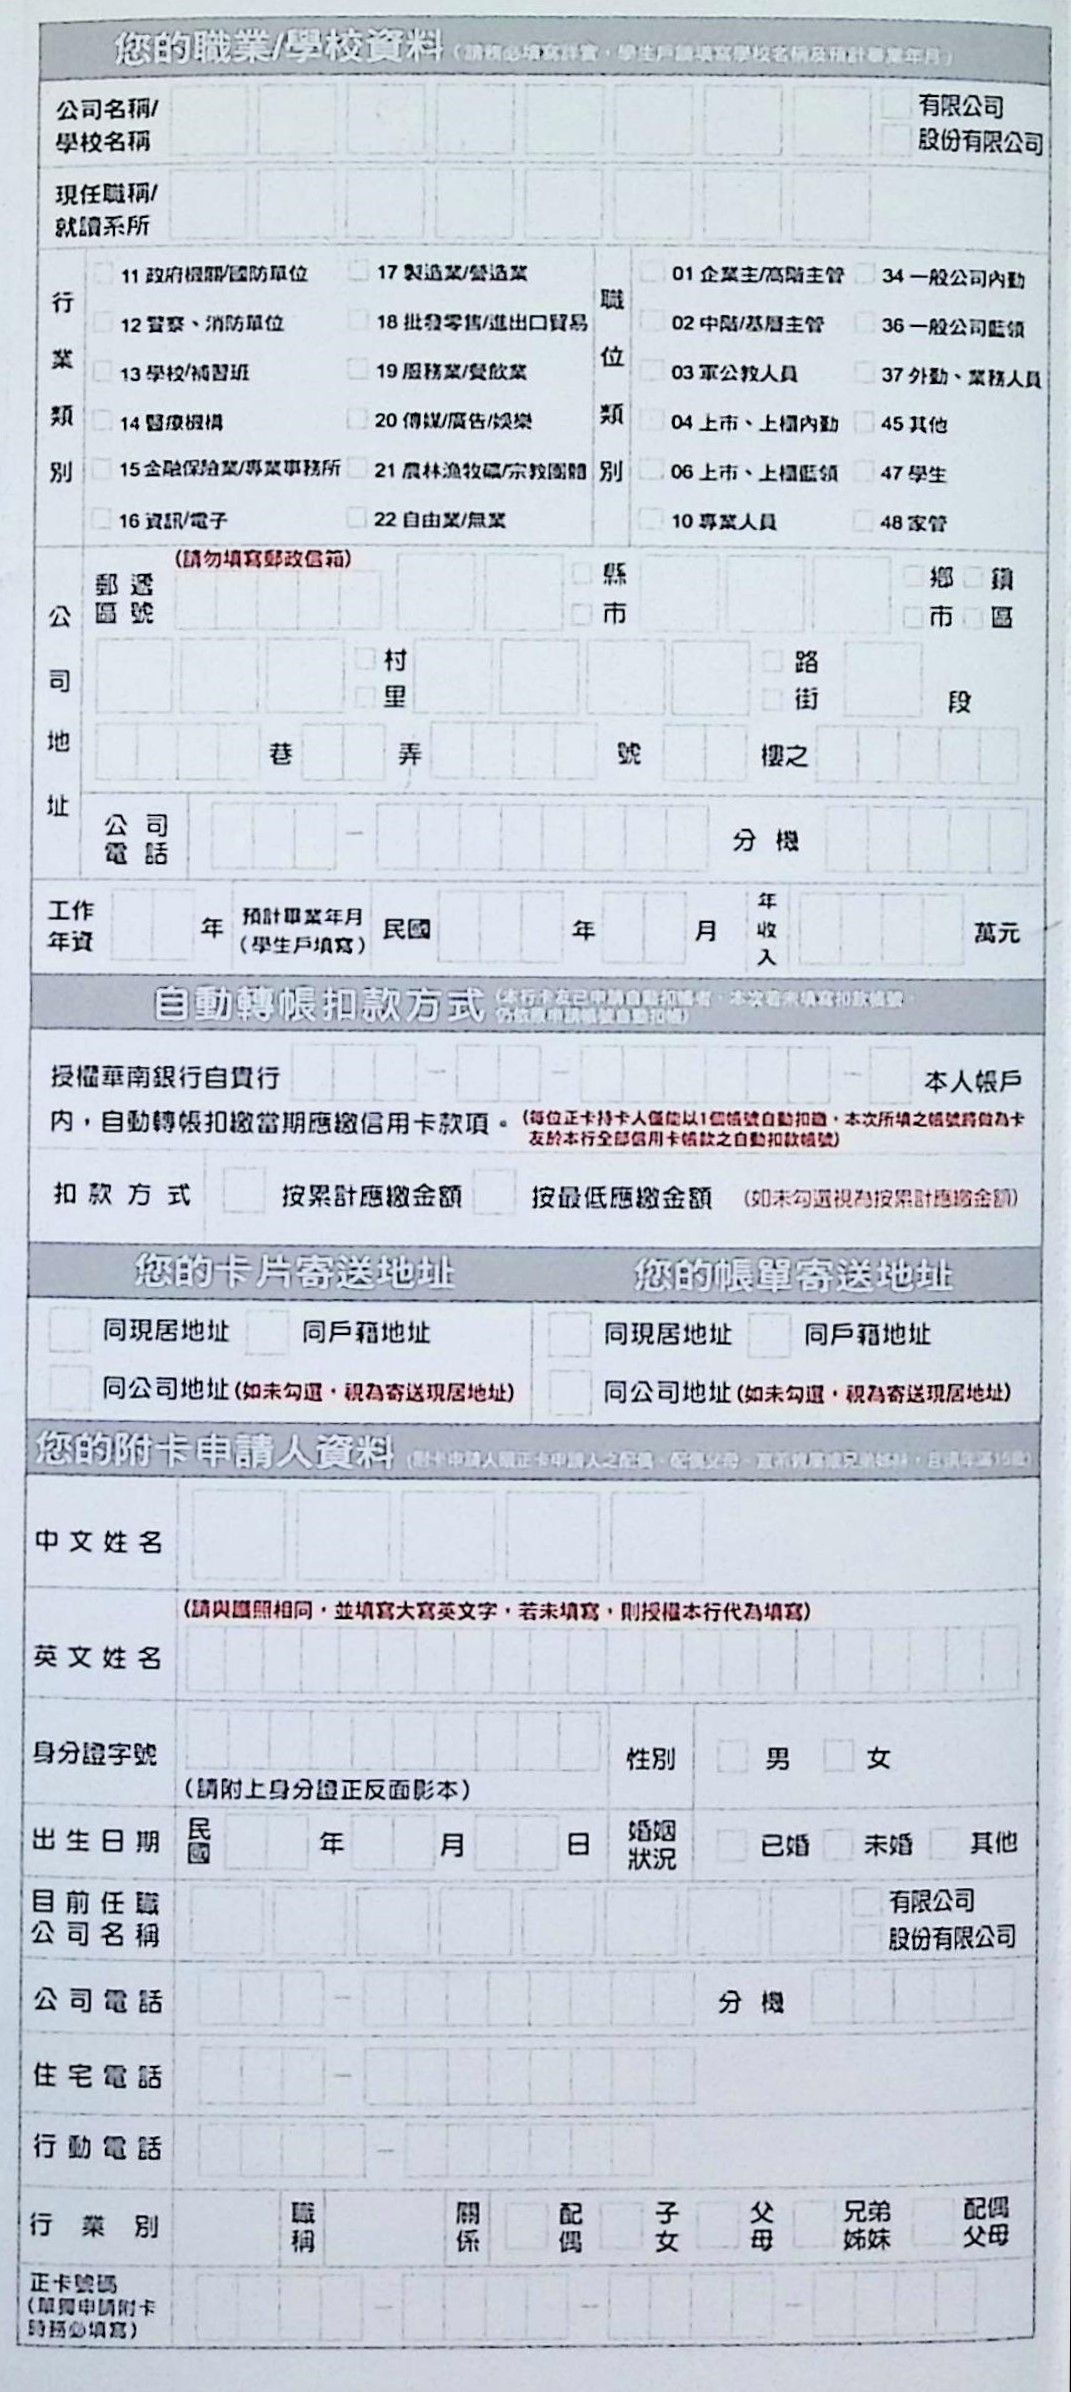 您的職業/學校資料(請務必填寫詳實,學生戶請填寫學校名稱及預計畢業年月)
公司名稱/
學校名稱
有限公司
股份有限公司
現任職稱/
就讀系所
行業類別
11 政府機關/國防單位
17 製造業/營造業
12 警察、消防單位
18 批發零售/進出口貿易
13 學校/補習班
19 服務業/餐飲業
14 醫療機構
20 傳媒/廣告/娛樂
15 金融保險業/專業事務所
21 農林漁牧礦/宗教團體
16 資訊/電子
22 自由業/無業
職位類別
01 企業主/高階主管
34 一般公司內勤
02 中階/基層主管
36 一般公司藍領
03 軍公教人員
37 外勤、業務人員
04 上市、上櫃內勤
45 其他
06 上市、上櫃藍領
47 學生
10 專業人員
48 家管
公司地址
(請勿填寫郵政信箱)
郵遞
區號
縣
市
鄉 鎮
市 區
村
里
路
街
段
巷 弄 號 樓之
公司
電話
分機
工作
年資
年
預計畢業年月
(學生戶填寫)
民國 年 月
年收入
萬元
自動轉帳扣款方式(本行卡友已申請自動扣帳者,本次若未填寫扣款帳號,
仍依原申請帳號自動扣帳)
授權華南銀行自貴行 – – – 本人帳戶
內,自動轉帳扣繳當期應繳信用卡款項。(每位正卡持卡人僅能以1個帳號自動扣繳,本次所填之帳號將做為卡
友於本行全部信用卡帳款之自動扣款帳號)
扣款方式 按累計應繳金額 按最低應繳金額 (如未勾選視為按累計應繳金額)
您的卡片寄送地址
您的帳單寄送地址
同現居地址 同戶籍地址
同公司地址(如未勾選,視為寄送現居地址)
同現居地址 同戶籍地址
同公司地址(如未勾選,視為寄送現居地址)
您的附卡申請人資料
中文姓名
(請與護照相同,並填寫大寫英文字,若未填寫,則授權本行代為填寫)
英文姓名
身分證字號
(請附上身分證正反面影本)
性別 男 女
出生日期
民國 年 月 日
婚姻
狀況
已婚 未婚 其他
目前任職
公司名稱
有限公司
股份有限公司
公司電話 – 分機
住宅電話 –
行動電話 –
行業別
職稱
關係
配偶
子女
父母
兄弟
姊妹
配偶
父母
正卡號碼
(單獨申請附卡
時務必填寫)
– – –